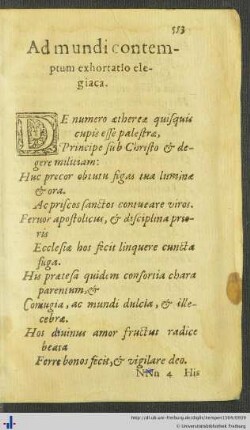 553
Ad mundi contem-
ptum exhortatio ele-
giaca.
DE numero æthereæ quisquis
cupis esse palestræ,
Principe sub Christo & de-
gere militiam:
Huc precor obtutu figas tua lumina
& ora.
Ac priscos sanctos contueare viros.
Fervor apostolicus, & disciplina prio-
ris
Ecclesiæ hos fecit linquere cuncta
fuga.
His prætesa quidem consortia chara
parentum, &
Coniugia, ac mundi dulcia, & ille-
cebræ.
Hos divinus amor fructus radice
beata
Ferre bonos fecit, & vigilare deo.
NNn 4 His
© Universitätsbibliothek Freiburg